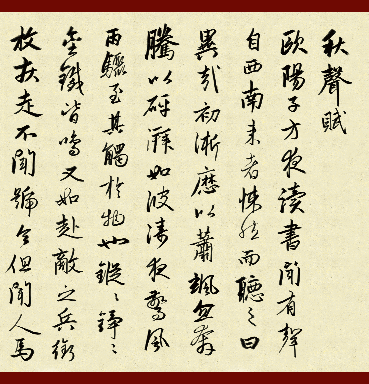 秋聲賦
欧陽子方夜读書聞有聲
自西南来者悚然而聽之曰
異哉初淅瀝以蕭颯忽奔
騰以砰湃如波濤夜驚風
雨驟至其觸於物也鏦〻錚〻
金鐵皆鳴又如赴敵之兵銜
枚疾走不聞號令但聞人馬